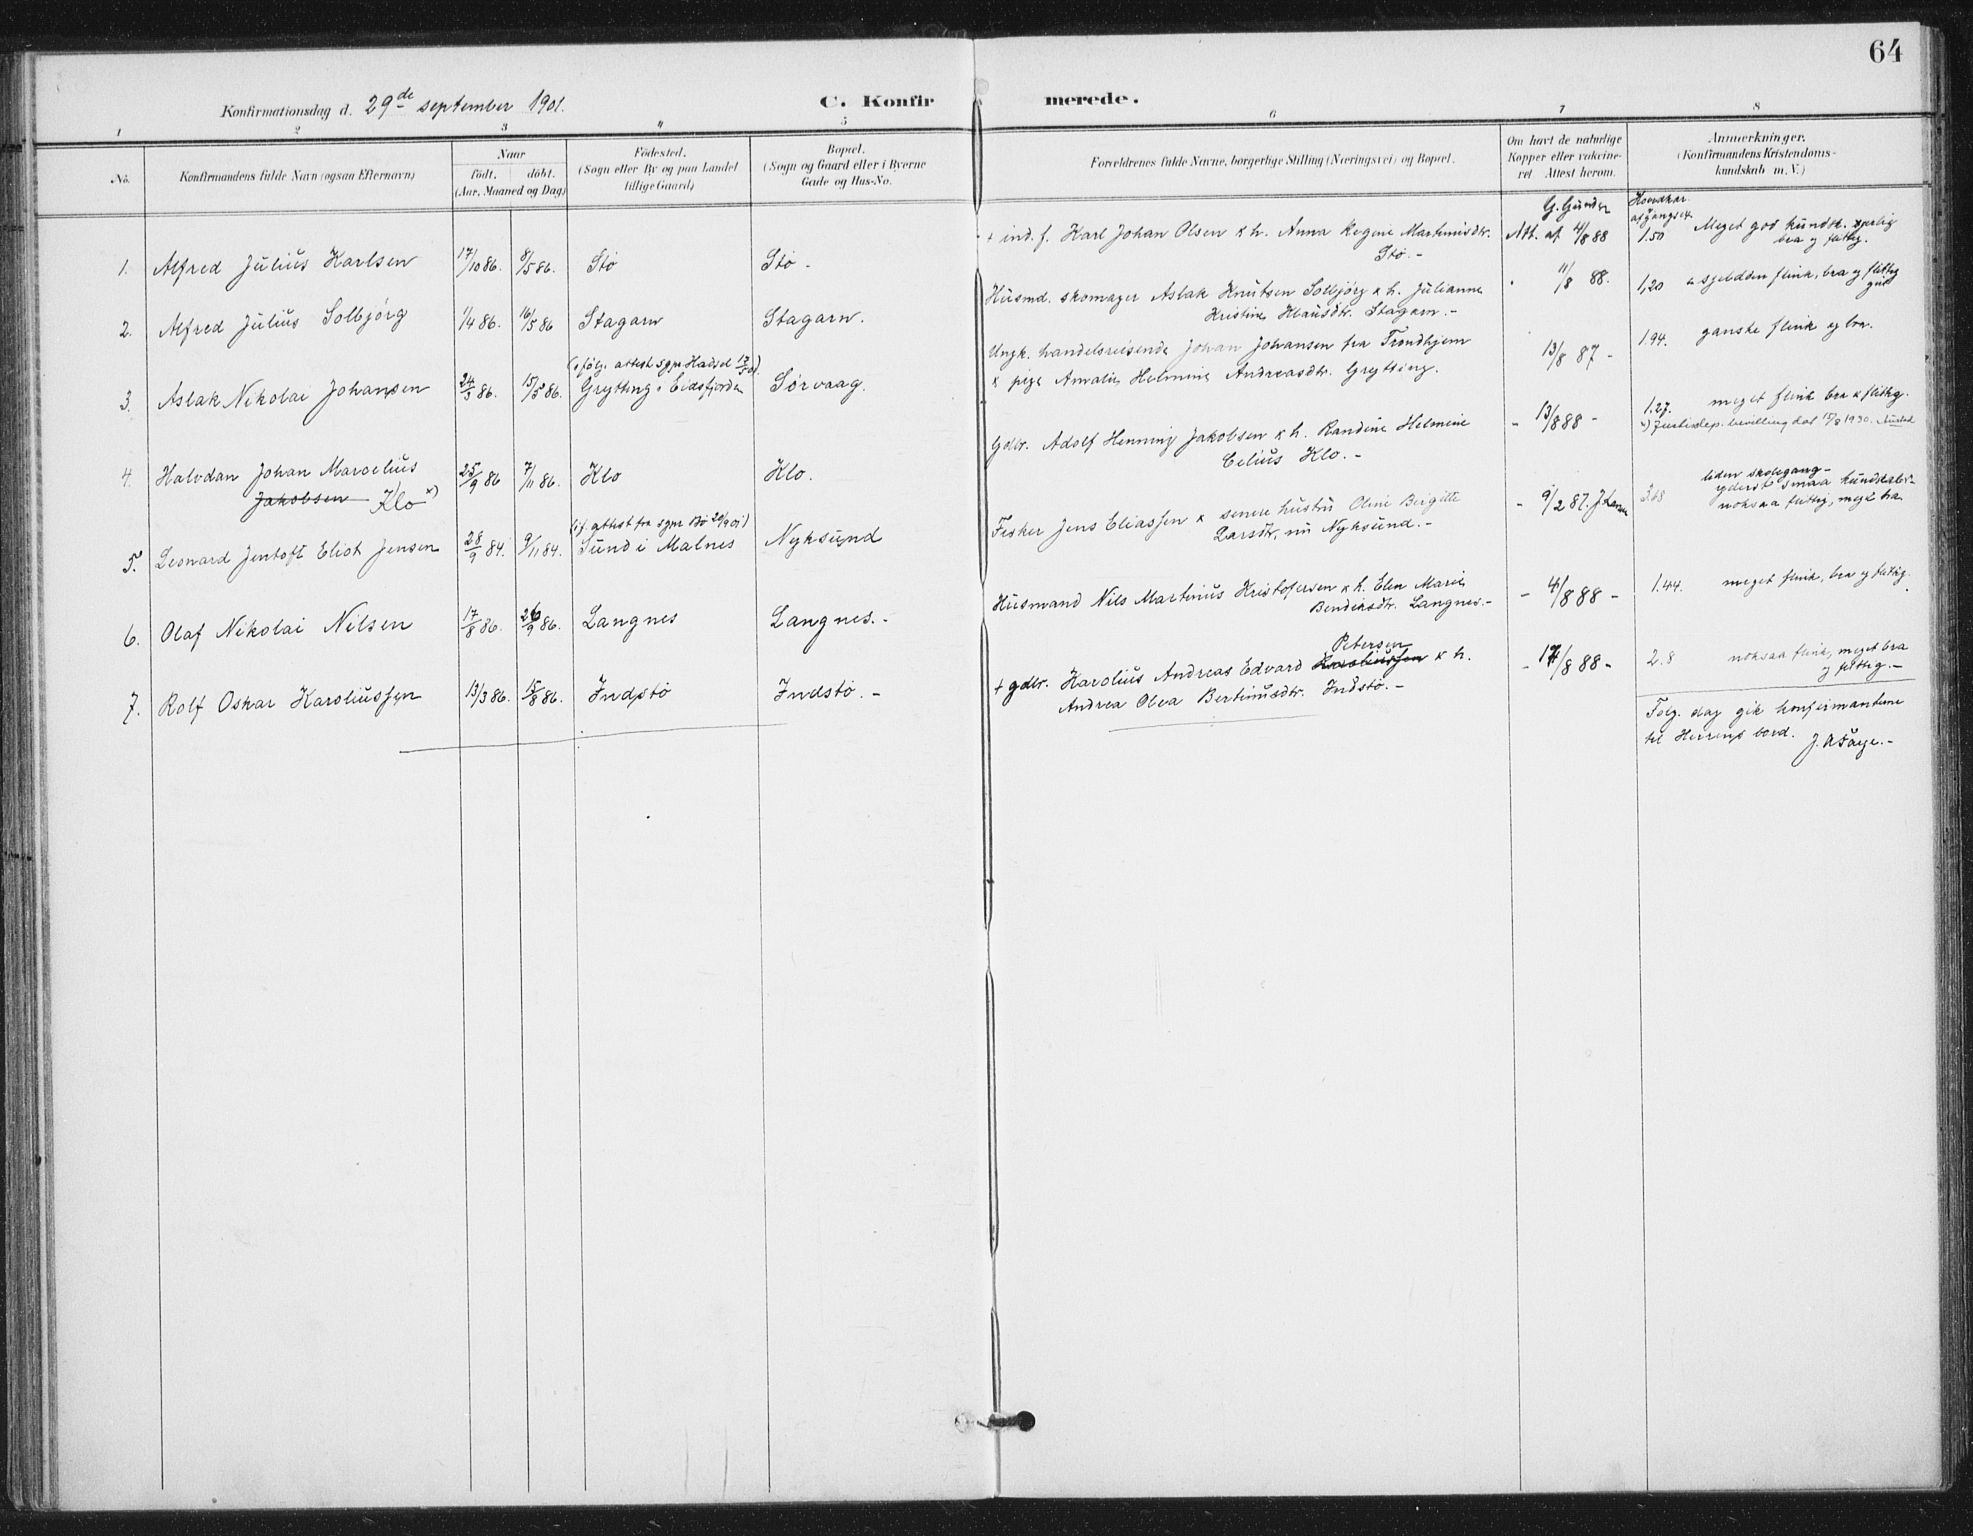 64
Konfirmationsdag d. 29de september 1901.
C. Konfirmerede.
1 2 3 4 5 6 7 8
No.
Konfirmandens fulde Navn (ogsaa Efternavn)
Naar
født. döbt.
(Aar, Maaned og Dag)
Födested.
(Sogn eller By og paa Landet
tillige Gaard)
Bopæl.
(Sogn og Gaard eller i Byerne
Gade og Hus-No.
Forældrenes fulde Navne, borgerlige Stilling (Næringsvei) og Bopæl.
Om havt de naturlige
Kopper eller vakcine-
ret Attest herom.
Anmærkninger.
(Konfirmandens Kristendoms-
kundskab m. V.)
1. Alfred Julius Karlsen 17/10 86. 8/5 86. Stö Stö -
+ ind. f. Karl Johan Olsen & h. Anna Regine Martinusdtr.
Stö. -
Att. af 4/8 88
1.50 Meget god kundsk.
bra og flittig.
2. Alfred Julius Solbjörg 1/4 86. 16/5 86 Stagarn Stagarn.
Husmd. skomager Aslak Knutsen Solbjörg & h. Julianne
Kristine Klausdtr. Stagarn. -
11/8 88.
1,20 sjelden flink, bra og flittig
3. Aslak Nikolai Johansen 24/3 86. 15/5 86.
(ifölg. attest sgpr Hadsel
Grytting i Eidsfjorden Sörvaag.
Ungk. handelsreisende Johan Johansen fra Trondhjem
& pige Amalie Helmine Andreasdtr. Grytting.
13/8 87 -
1.94. ganske flink og bra.
4. Halvdan Johan Marselius
Jakobsen Klo x)
25/9 86 7/11 86. Klo Klo.
Gdbr. Adolf Henning Jakobsen & h. Randine Helmine
Celius Klo. -
- 13/8 88 -
1.27. meget flink bra & flittig.
x) Justisdep. bevilling dat 15/8 1930.
5. Leonard Jentoft Eliot Jensen 28/9 84. 9/11 84.
(if. attest fra sgpr Bö 20/9 01)
Sund i Malnes Nyksund
Fisker Jens Eliassen & senere hustru Oline Bergitte
Larsdtr, nu Nyksund. -
- 9/2 87.
liden skolegang -
yderst smaa kundskaber -
noksaa flittig, meget bra
6. Olaf Nikolai Nilsen 17/8 86. 26/9 86. Langnes Langnes. -
Husmand Nils Martinus Kristofersen & h. Elen Marie
Bendiksdtr. Langnes. -
- 4/8 88 -
1.44. meget flink, bra og flittig.
7. Rolf Oskar Karoliussen 13/3 86. 15/8 86. Indstö Indstö. -
+ gdbr. Karolius Andreas Edvard Karoliussen Petersen & h.
Andrea Olea Bertinusdtr. Indstö. -
- 17/8 88 -
2.8 noksaa flink, meget bra
og flittig. -
Fölg. dag gik konfirmanterne
til Herrens bord.